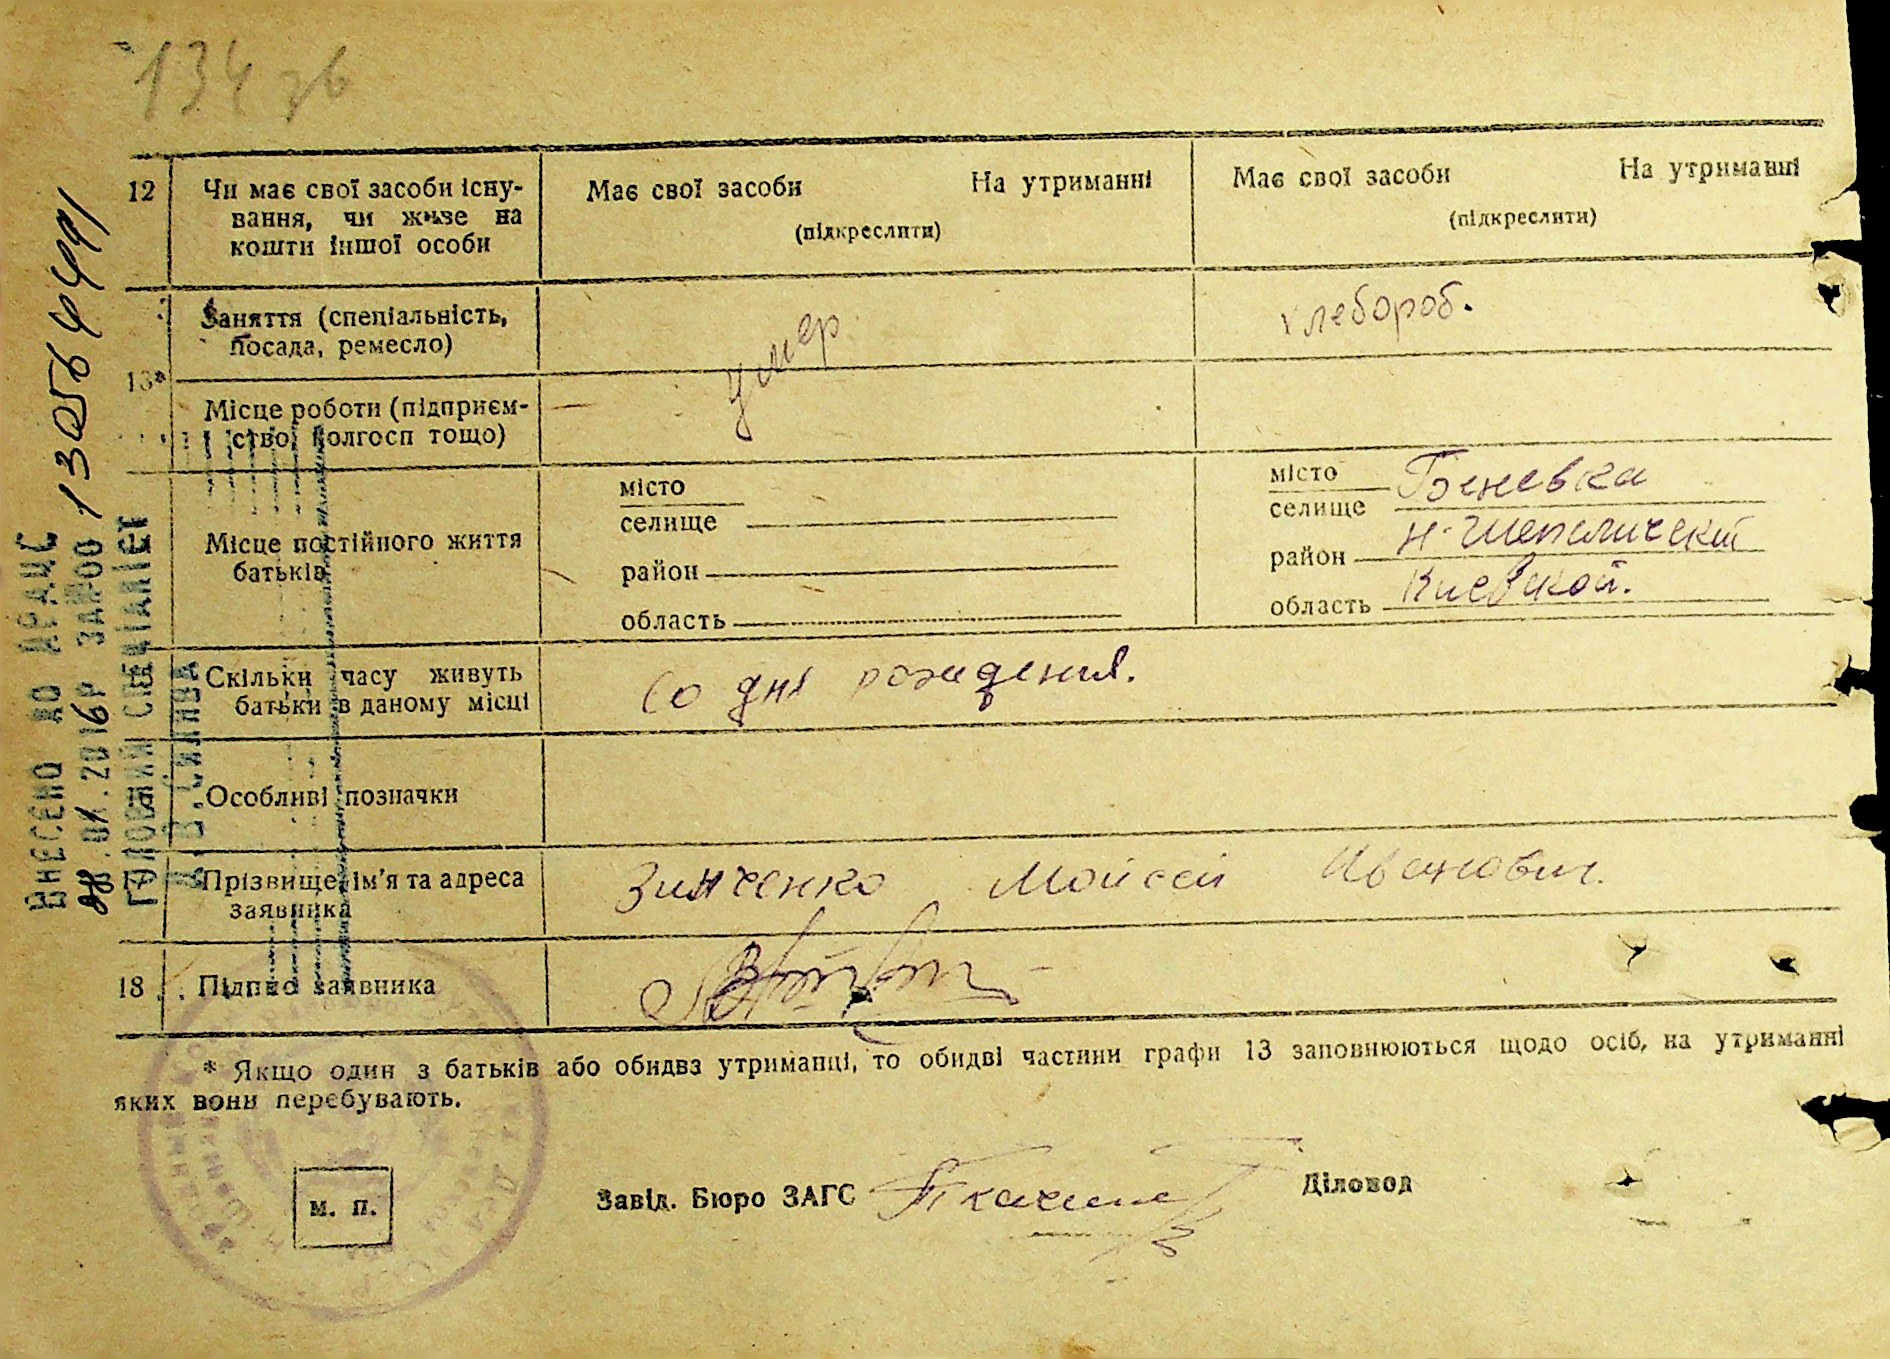 134 зв
12
Чи має свої засоби існу-
вання, чи живе на
кошти іншої особи
Має свої засоби На утриманні
(підкреслити)
Має свої засоби На утриманні
(підкреслити)
13*
Заняття (спеціальність,
посада, ремесло)
умер
хлебороб.
Місце роботи (підприєм-
ство, колгосп тощо)
Місце постійного життя
батьків
місто
селище
район
область
місто
селище
район Н-Шепеличский
область Киевской.
Скільки часу живуть
батьки в даному місці
Со дня рождения.
Особливі позначки
17
Прізвище, ім'я та адреса
заявника
Зинченко Мойсей Иванович.
18
Підпис заявника
* Якщо один з батьків або обидва утриманці, то обидві частини графи 13 заповнюються щодо осіб, на утриманні
яких вони перебувають.
М. П.
Завід. Бюро ЗАГС
Діловод
ВНЕСЕНО ДО ДРАЦС
.01.2016Р ЗА №00
ГОЛОВНИЙ СПЕЦІАЛІСТ